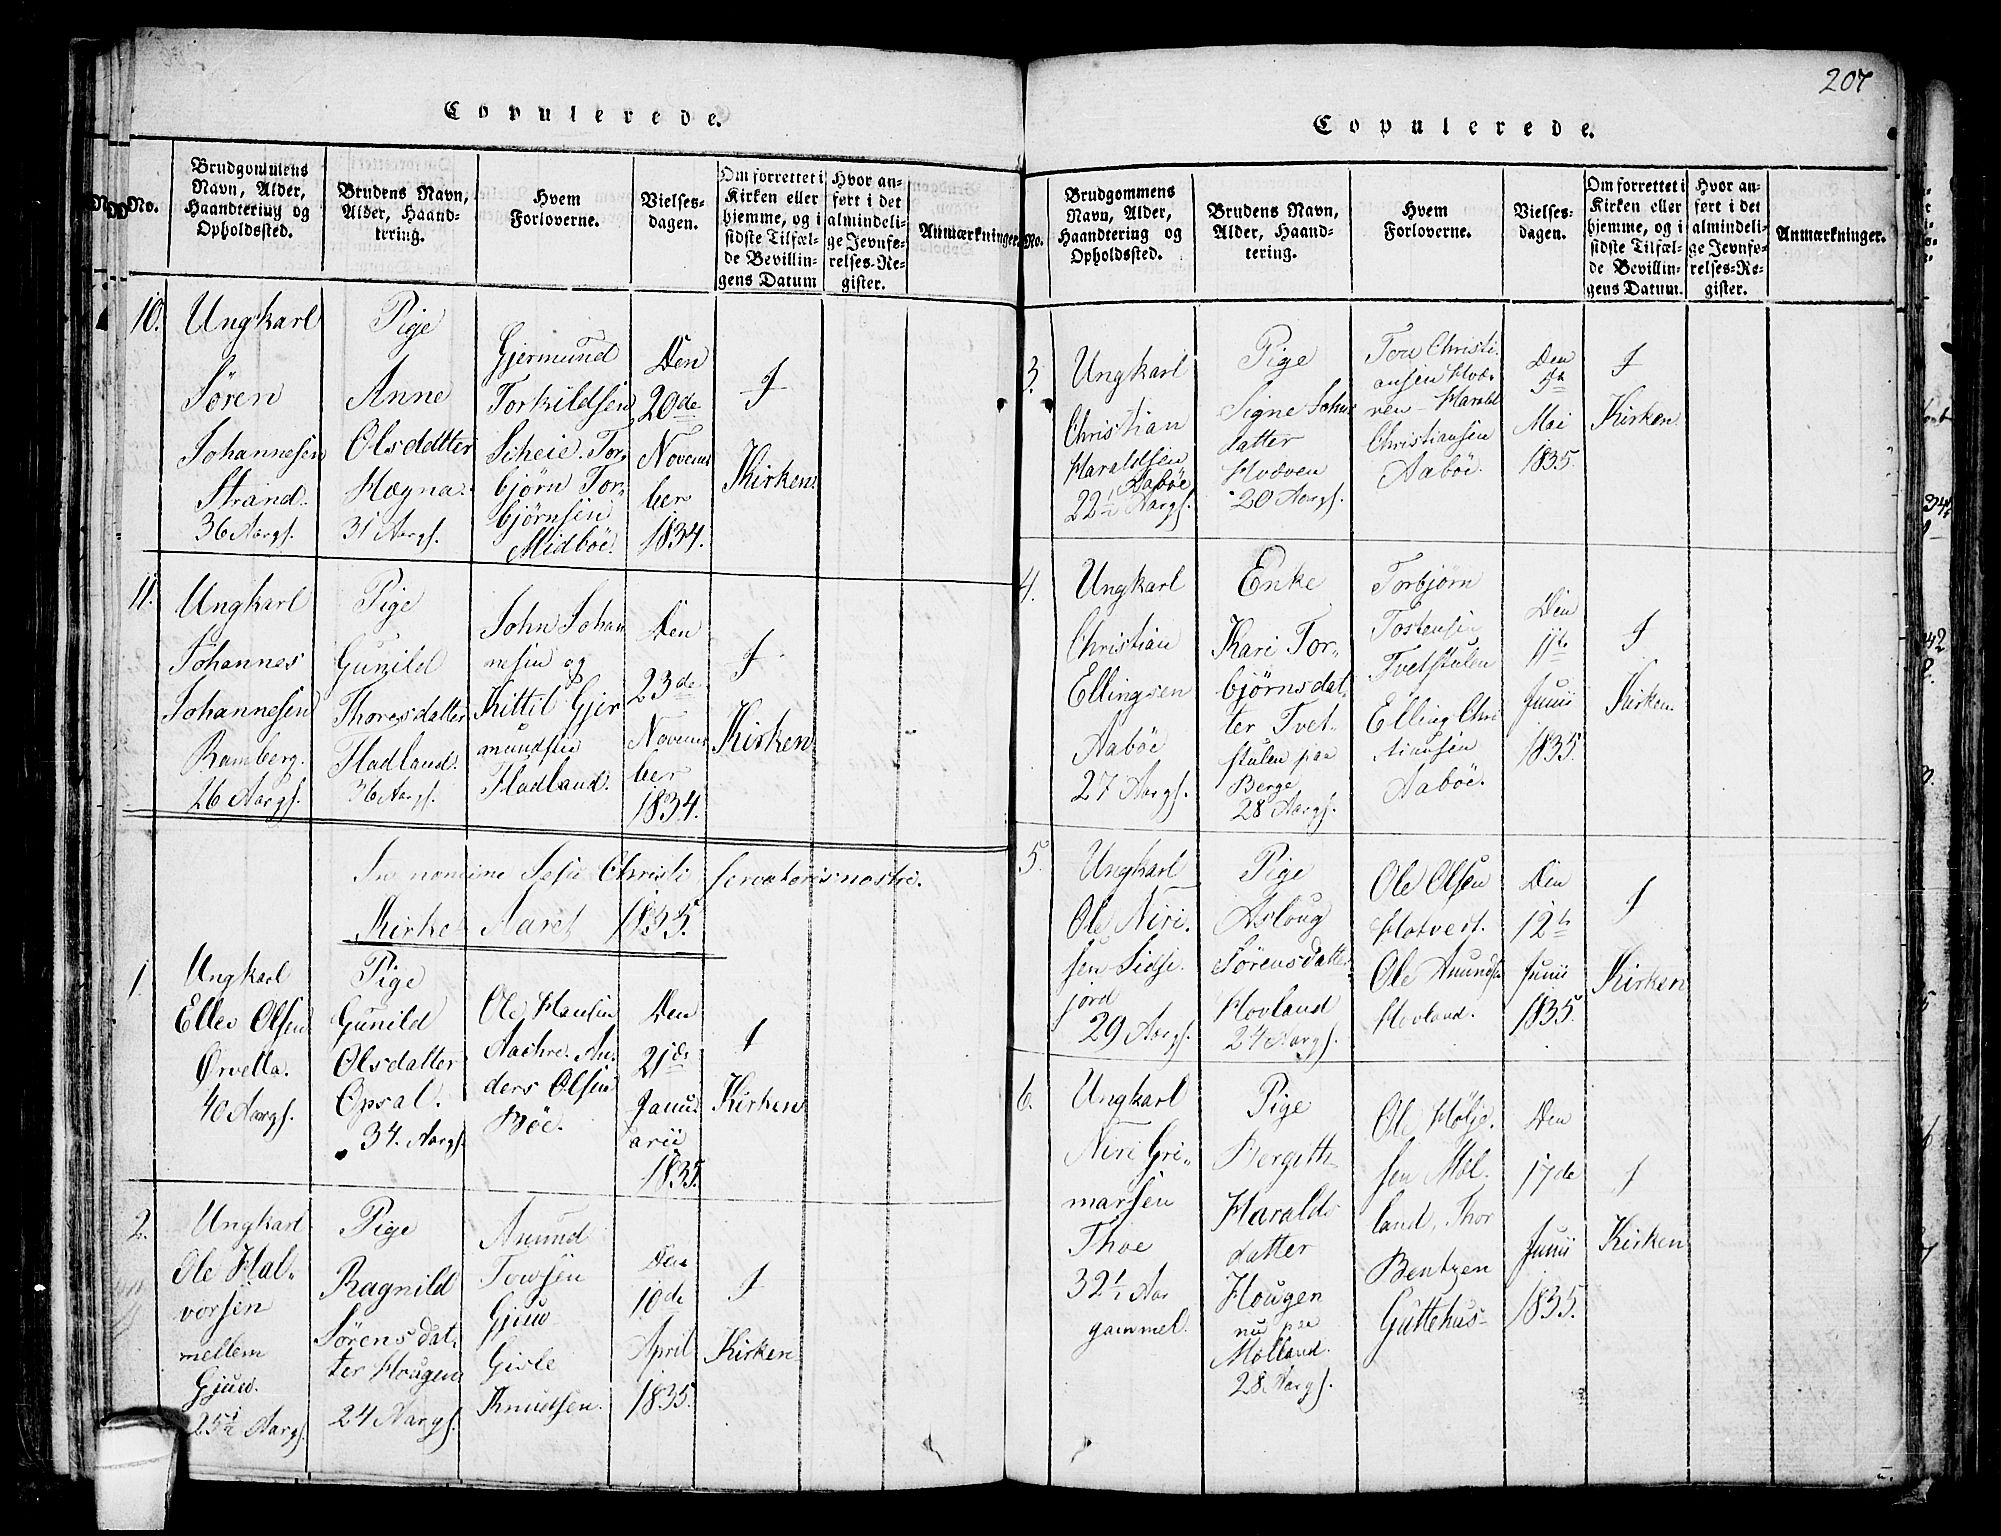 Copulerede.
No.
Brudgommens
Navn, Alder,
Haandtering og
Opholdssted.
Brudens Navn,
Alder, Haand-
tering.
Hvem
Forloverne.
Vielses-
dagen.
Om forrettet i
Kirken eller
hjemme, og i
sidste Tilfæl-
de Bevillin-
gens Datum
Hvor an-
ført i det
almindeli-
ge Jevnfø-
relses-Re-
gister.
Anmærkninger.
10.
Ungkarl
Sören
Johannesen
Strand.
36 Aargs.
Pige
Anne
Olsdatter
Hægna.
31 Aargs.
Gjermund
Torkildsen
Scheie. Tor-
bjørn Tor-
bjørnsen
Midböe.
Den
20de
Novem
ber
1834.
I
Kirken.
11.
Ungkarl
Johannes
Johannesen
Ramberg.
26 Aargs.
Pige
Gunild
Thoresdatter
Fladland.
36 Aargs.
John Johan
nesen og
Kittil Gjer
mundsen
Fladland.
Den
23de
Novem
ber
1834.
I
Kirken
In nomine Jesu Christi servatoris nostri.
Kirke Aaret 1835.
1.
Ungkarl
Ellev Olsen
Ørvella.
40 Aargs.
Pige
Gunild
Olsdatter
Opsal.
34. Aargs.
Ole Hansen
An-
ders Olsen
Böe.
Den
21de
Janu
arii
1835.
I
Kirken
2.
Ungkarl
Ole Hal-
vorsen
mellem
Gjuw.
25½ Aargs.
Pige
Ragnild
Sörensdat-
ter Hougen
24 Aargs.
Amund
Towsen
Gjuw
Gisle
Knudsen.
Den
10de
April
1835.
I
Kirken
207
Copulerede.
No.
Brudgommens
Navn, Alder,
Haandtering og
Opholdssted.
Brudens Navn,
Alder, Haand-
tering.
Hvem
Forloverne.
Vielses-
dagen.
Om forrettet i
Kirken eller
hjemme, og i
sidste Tilfæl-
de Bevillin-
gens Datum.
Hvor an-
ført i det
almindeli-
ge Jevnfø-
relses-Re-
gister.
Anmærkninger.
3.
Ungkarl
Christian
Haraldsen
Aaböe
22½ Aargs.
Pige
Signe Johns
datter
Hvæven
20 Aargs.
Tov Christi
ansen Hvæ-
ven - Harald
Christiansen
Aaböe.
Den
5te
Mai
1835.
I
Kirken
4.
Ungkarl
Christian
Ellingsen
Aaböe
27 Aargs.
Enke
Kari Tor-
björnsdat-
ter Tvet-
stulen paa
Berge
28 Aargs.
Torbjørn
Tostensen
Tvetstulen
Elling Chri
stiansen
Aaböe.
Den
11te
Junii
1835.
I
Kirken
5.
Ungkarl
Ole Niri-
sen Lidse-
jord
29 Aargs.
Pige
Asloug
Sörensdatter
Hovland
24 Aargs.
Ole Olsen
Hotvedt.
Ole Amunds.
Hovland.
Den
12te
Junii
1835.
I
Kirken
6.
Ungkarl
Niri Gri-
marsen
Thoe
32½ Aar
gammel.
Pige
Bergith
Haralds
datter
Hougen
nu paa
Molland.
28 Aargs.
Ole Hölje-
sen Mol-
land, Thor
Bentzen
Guttehus-
Den
17de
Junii
1835.
I
Kirken